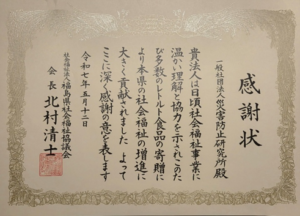 感謝状
一般社団法人防災害防止研究所殿
貴法人は日頃社会福祉事業に
温かい理解と協力を示されこのた
び多数のレトルト食品の寄贈に
より本県の社会福祉の増進に
大きく貢献されました よって
ここに深く感謝の意を表します
令和七年五月十二日
社会福祉法人 福島県社会福祉協議会
会長 北村清士